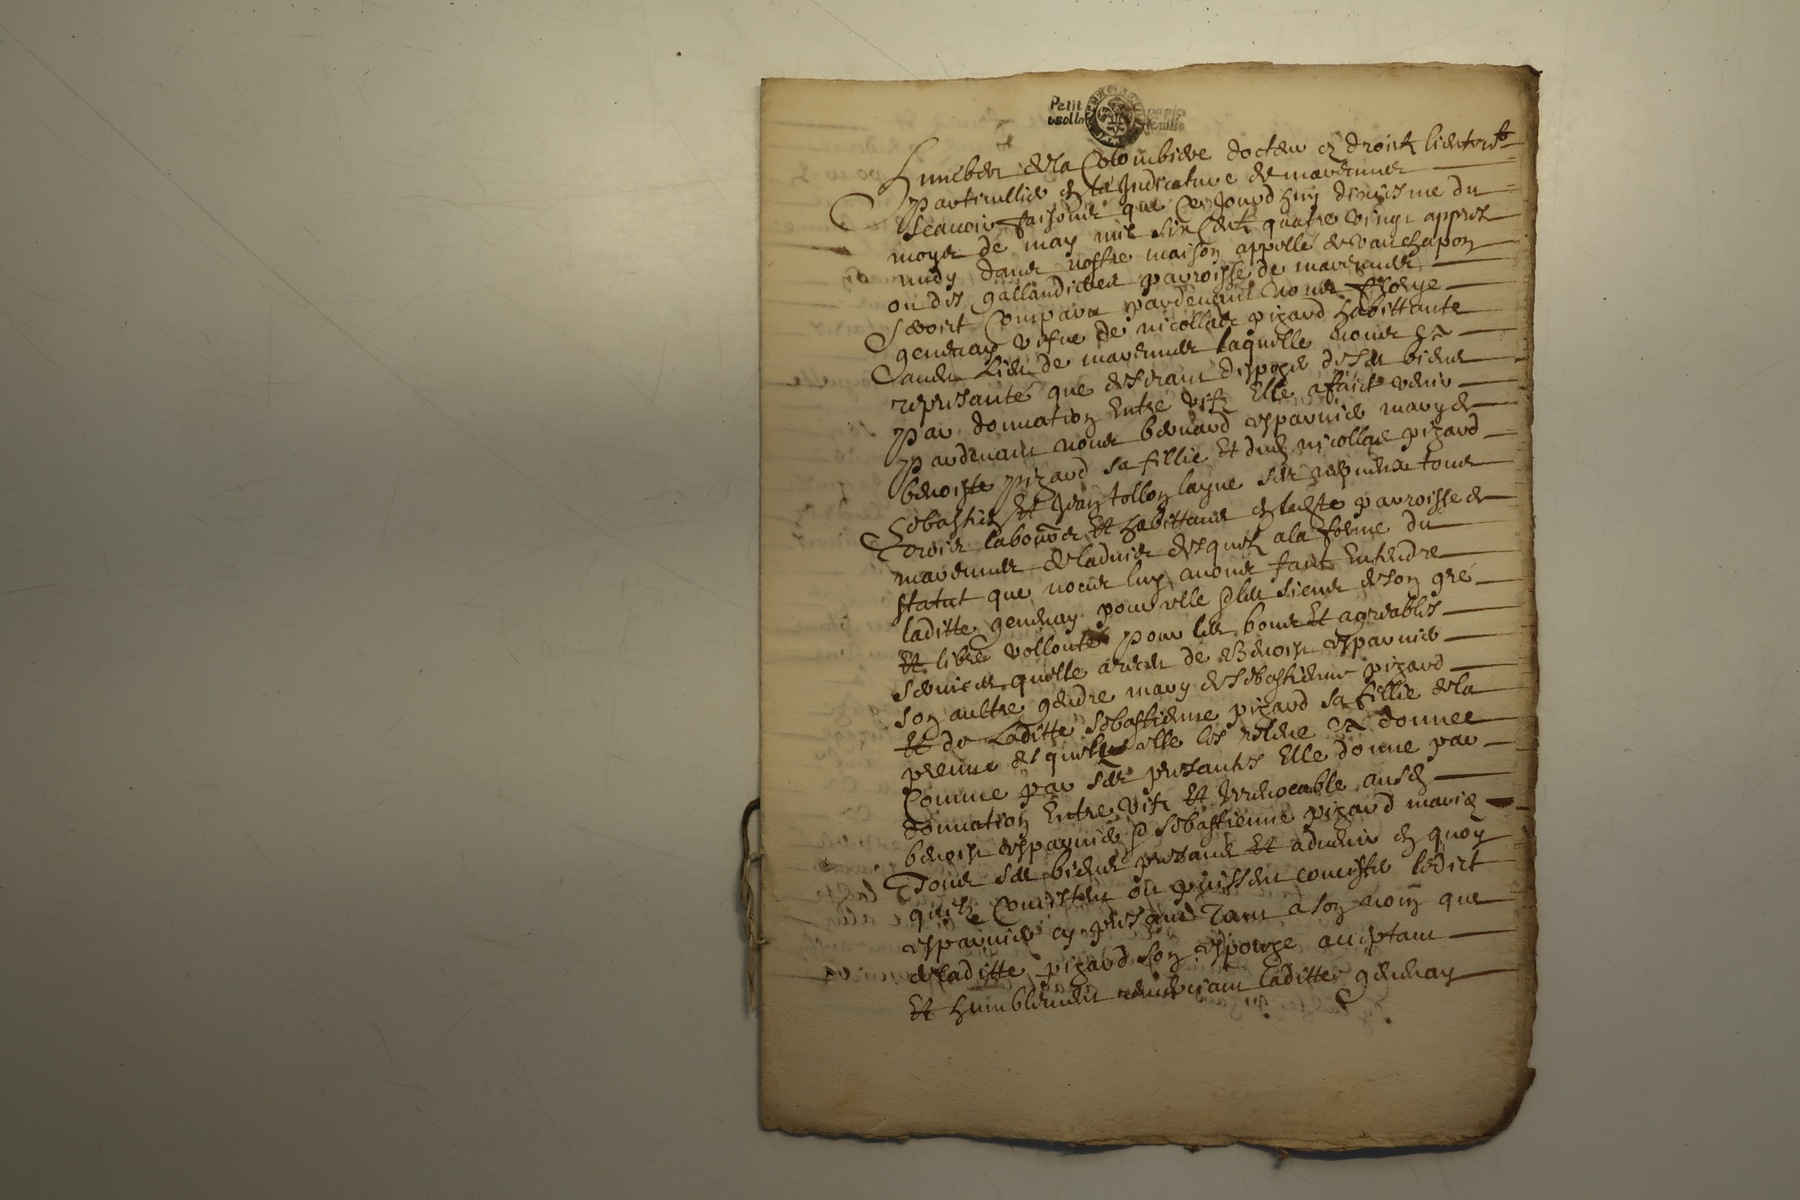 Petit papier
rolle feuille
Humbert de la Colombiere docteur en droict lieuten.t
particullier en la Judicature de marennes
scavoir faisons que ce Jourd huy dixiesme du
moys de may mil six cent quatre vingt appres
midy dans nostre maison appelle de vauchapon
ou dis gallandieres parroisse de
seroit comparu pardevant nous
gendray vefve de nicollas pizard habittante
audit lieu de laquelle nous a
represanté que desirant dispozer de ses biens
par donnation entre vifz elle a faict venir
pardevant nous bernard esparnier mary de
benoiste pizard sa fillie et dud nicollas pizard
Sebastien et Jean tollon layne ses
laboureurs et habittans en ladte parroisse de
de ladvis desquelz a la forme du
statut que nous luy avons faict entendre
laditte gendray pour elle et les siens de son gre
et libre vollonté pour les bons et agreables
services quelle a receu de Benoist esparnier
son aultre gendre mary de sebastienne pizard
et de laditte sebastienne pizard sa fillie de la
preuve desquelz elle les releve a donnee
comme par ses presantes elle donne par
donnation entre vifz et Irrevocable ausd
benoist esparnier et sebastienne pizard mariez
tous ses biens presans et advenir en quoy
quilz consistent ou puissent consister ledict
esparnier cy presant tant a son nom que
de laditte pizard son espouze acceptant
et humblement remerciant laditte gendray